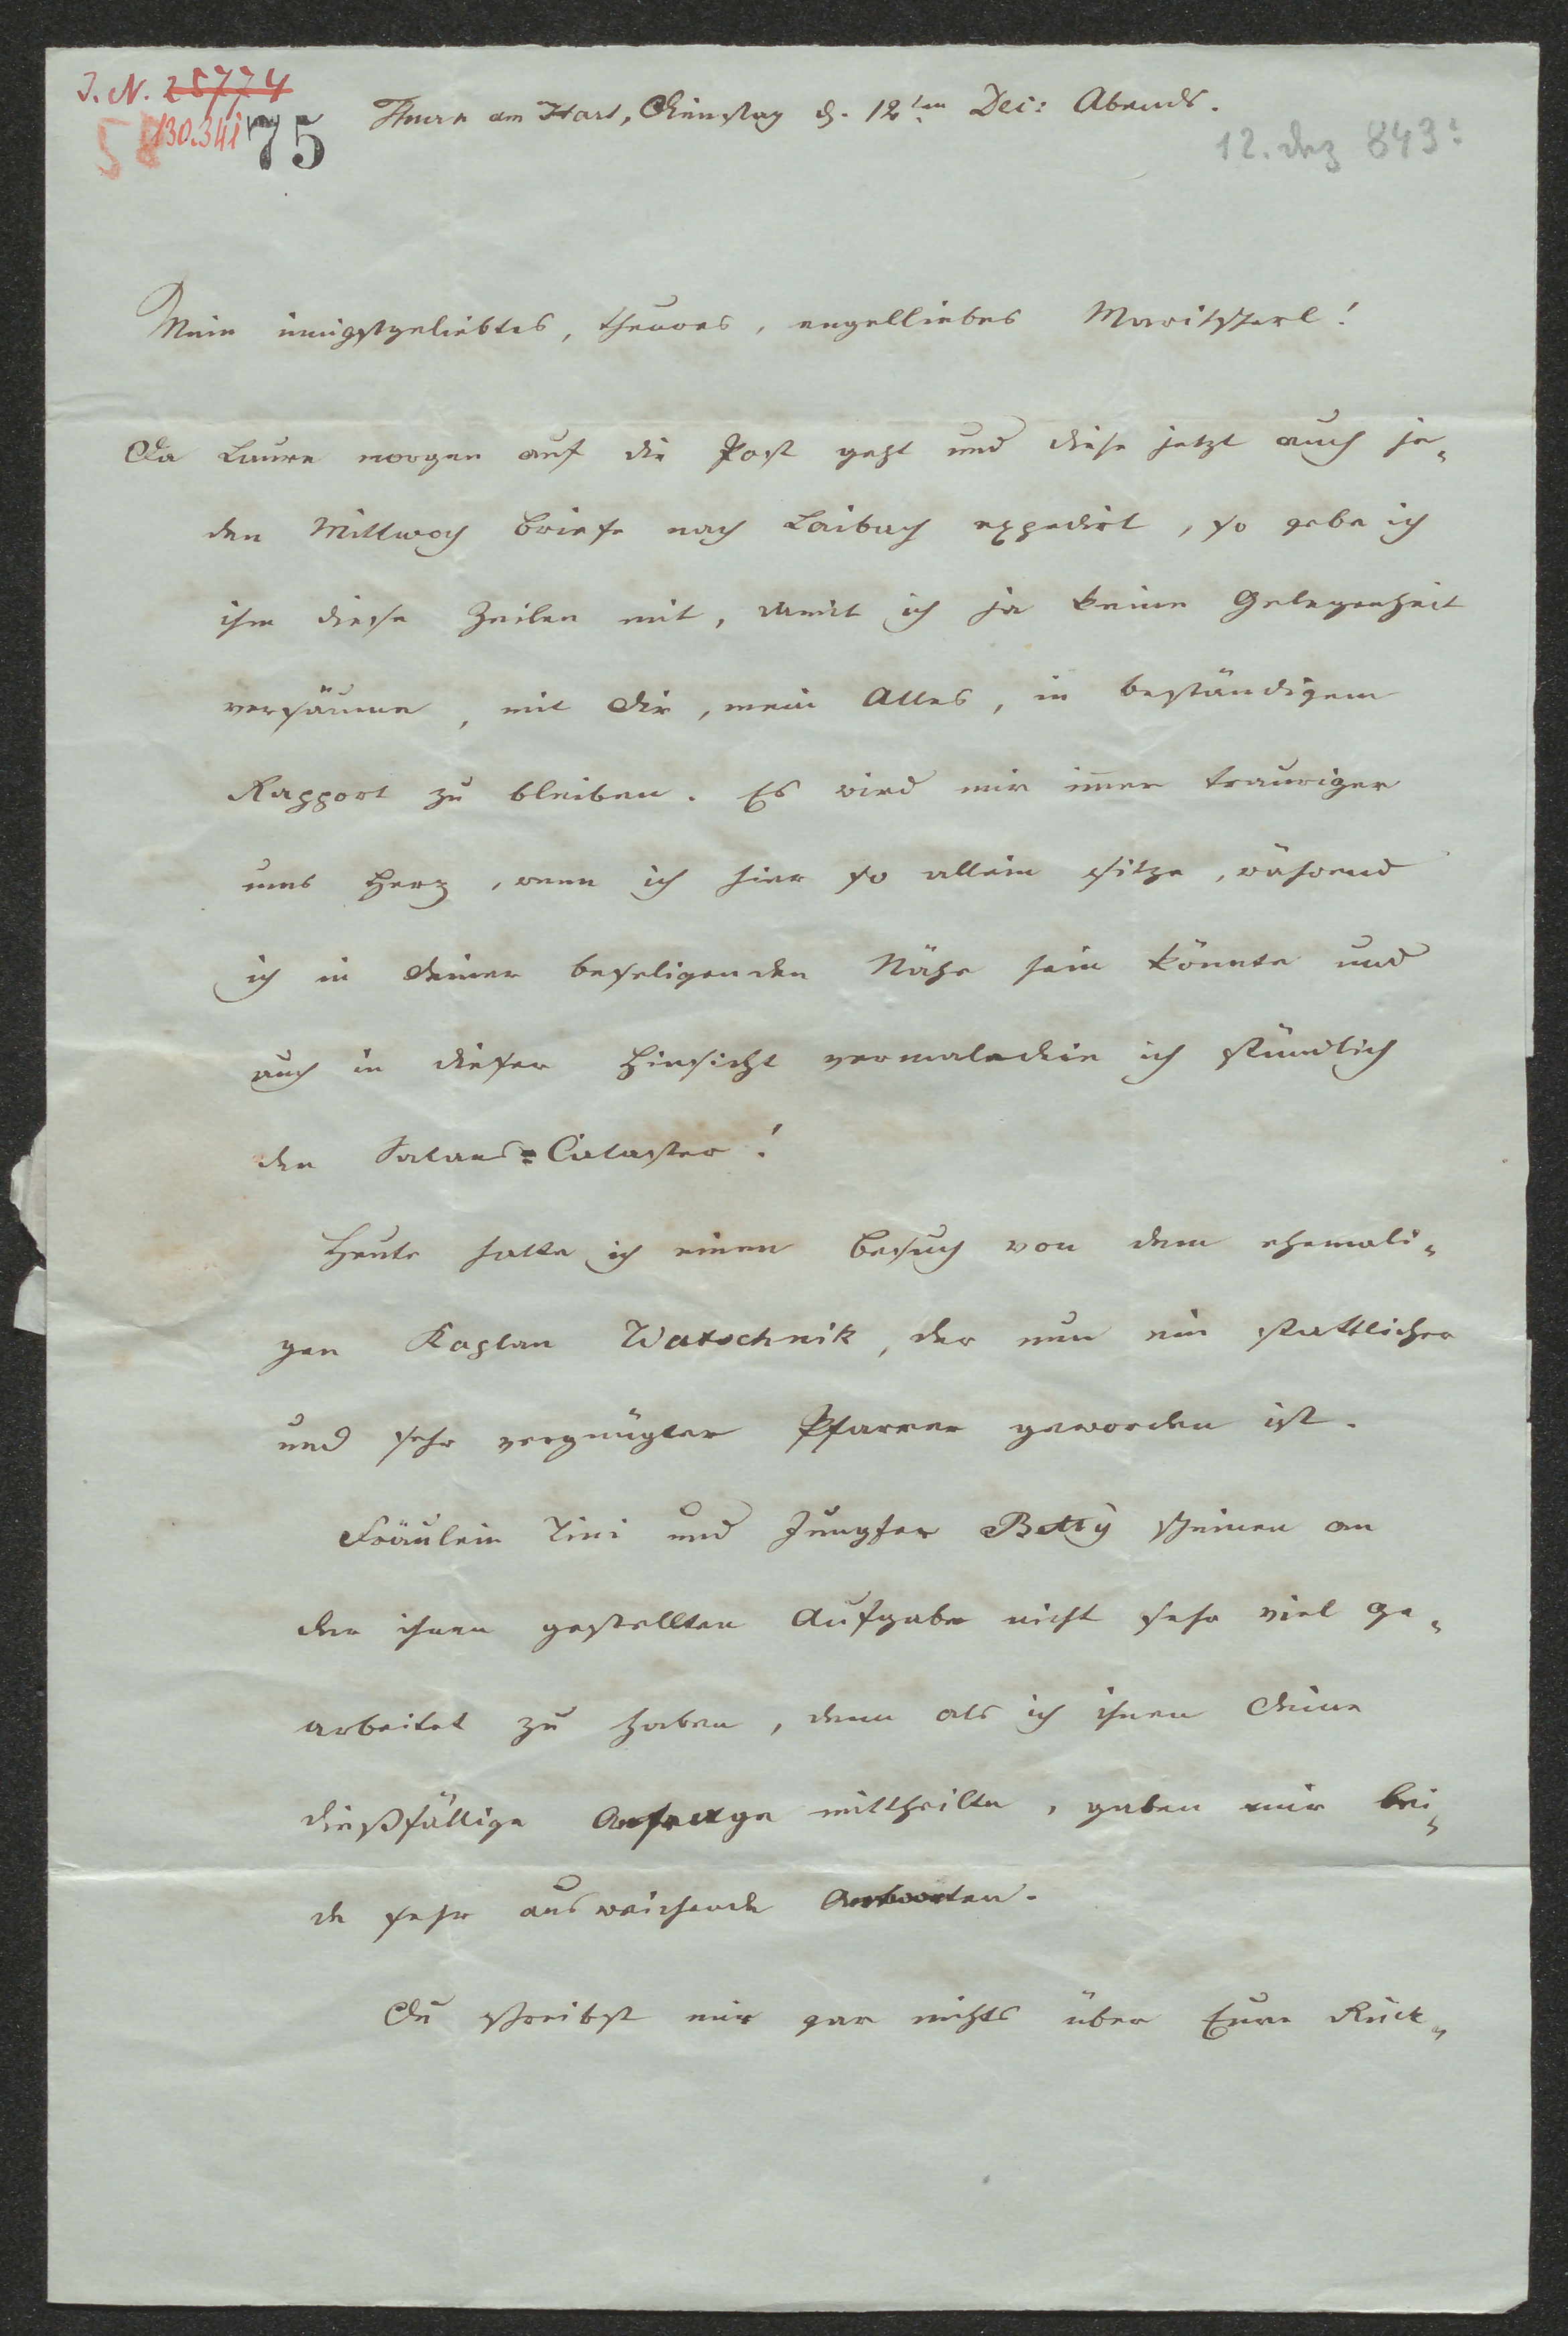 J. N. 25774
58 130.341 75
Thurn am Hart, Dienstag d. 12ten Dec: Abends.
12. Dez 843.
Mein innigstgeliebtes, theures, engelliebes Maritscherl!
Da Laure morgen auf die Post geht und diese jetzt auch je-
den Mittwoch Briefe nach Laibach expedirt, so gebe ich
ihm diese Zeilen mit, damit ich ja keine Gelegenheit
versäume, mit Dir, mein Alles, in beständigem
Rapport zu bleiben. Es wird mir immer trauriger
ums Herz, wenn ich hier so allein sitze, während
ich in Deiner beseligenden Nähe sein könnte und
auch in dieser Hinsicht vermaledeie ich stündlich
den Satans=Cataster!
Heute hatte ich einen Besuch von dem ehemali-
gen Kaplan Watschnik, der nun ein stattlicher
und sehr vergnügter Pfarrer geworden ist.
Fräulein Tini und Jungfer Betty scheinen an
der ihnen gestellten Aufgabe nicht sehr viel ge-
arbeitet zu haben, denn als ich ihnen Deine
dießfällige Anfrage mittheilte, gaben mir bei-
de sehr ausweichende Antworten.
Du schreibst mir gar nichts über Eure Rück-